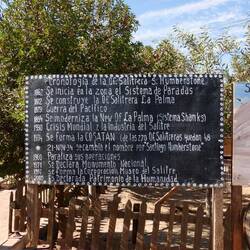 Cronología de la Of. Salitrera S. Humberstone
1862 Se inicia en la zona el Sistema de Paradas
1872 Se construye la Of. Salitrera La Palma
1879 Guerra del Pacífico
1889 Se moderniza la New Of. La Palma (Sistema Shanks)
1930 Crisis Mundial de la Industria del Salitre
1934 Se forma la COSATAN
21-NOV-34 cambia el nombre por Santiago Humberstone
1960 Paraliza sus operaciones
1970 Se Declara Monumento Nacional
Se forma la Corporación Museo del Salitre
Declarada Patrimonio de la Humanidad